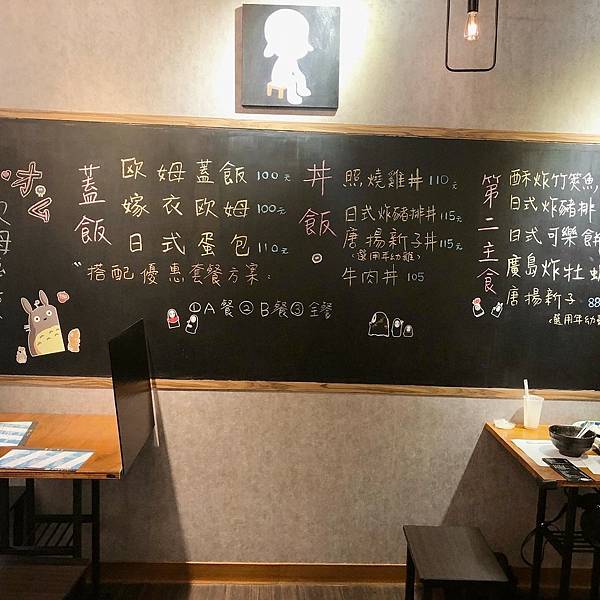 蓋飯
歐姆蓋飯 100元
嫁衣歐姆 100元
日式蛋包 110元
"搭配優惠套餐方案:
①A餐②B餐③全餐
丼飯.
照燒雞丼 110元
日式炸豬排丼115元
唐揚新子丼115元
(選用年幼雞)
牛肉丼 105
第二主食
酥炸竹筴魚
日式炸豬排
日式可樂餅
廣島炸牡蠣
唐揚新子 88
(選用年幼